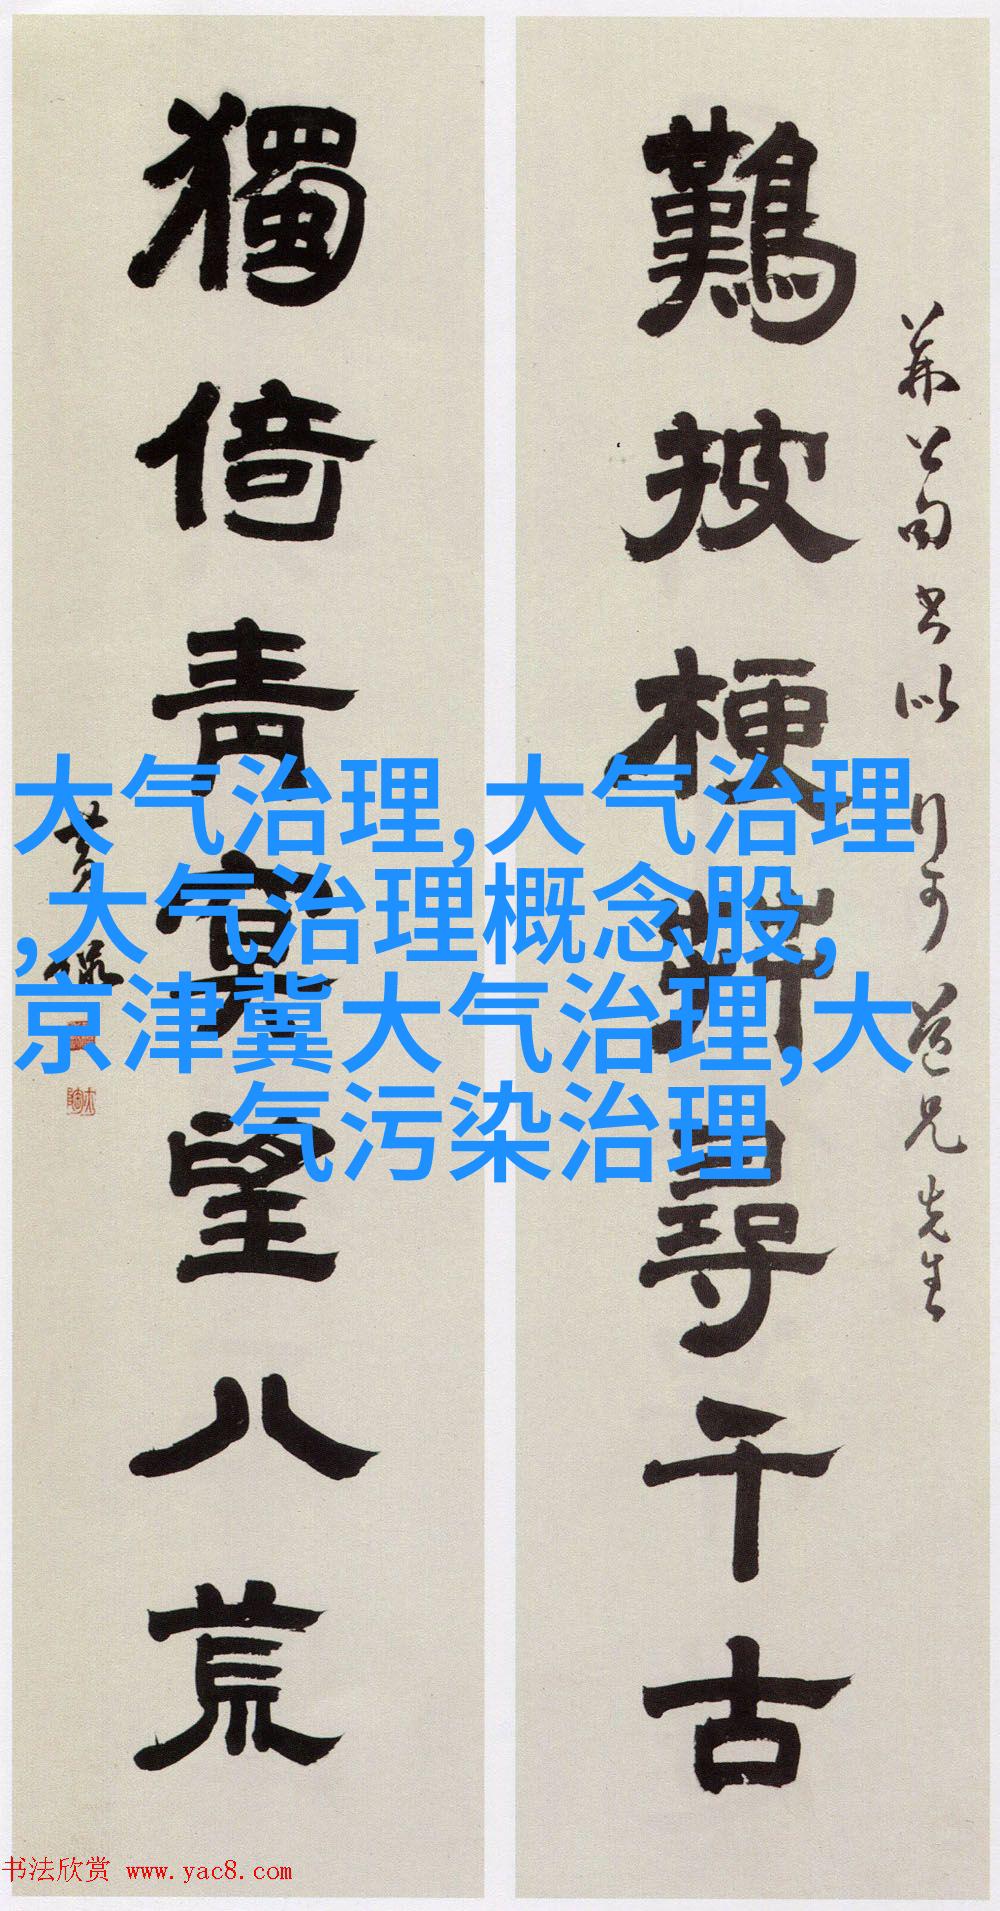 難披梗尋千古
以 行可 道兄先生
獨倚青冥望八荒
大气治理,大气治理
,大气治理概念股,
京津冀大气治理,大
气污染治理
书法欣赏 www.yac8.com